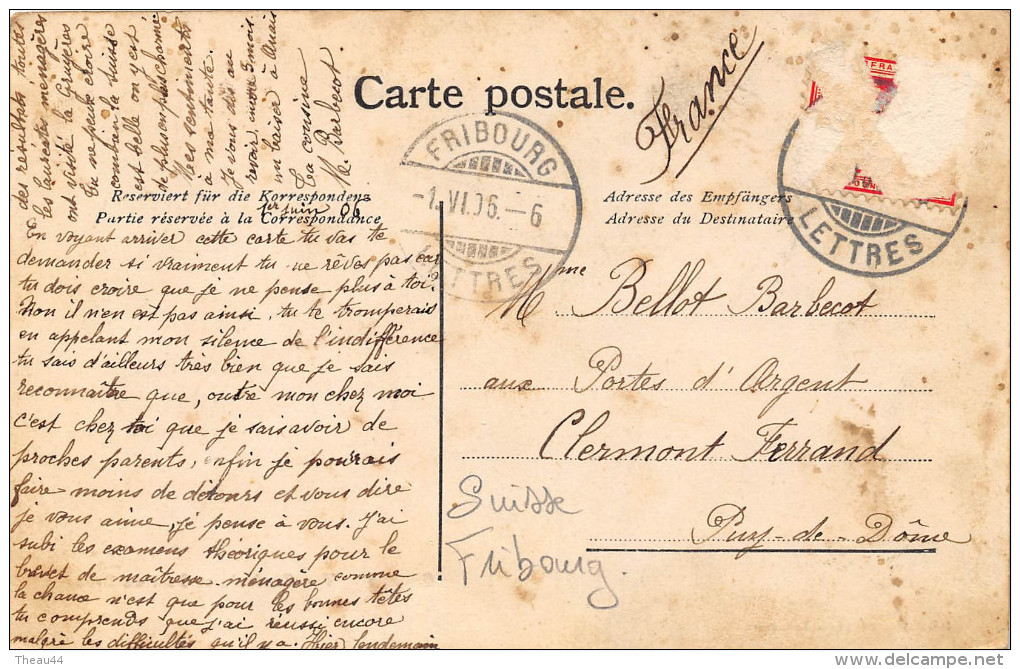 Carte postale.
France
FRIBOURG
-1.VI.06.-6
LETTRES
LETTRES
Reserviert für die Korrespondenz
Partie réservée à la Correspondance
Adresse des Empfängers
Adresse du Destinataire
1er juin 06
En voyant arriver cette carte tu vas te
demander si vraiment tu ne rêves pas car
tu dois croire que je ne pense plus à toi?
Non il n'en est pas ainsi, tu te tromperais
en appelant mon silence de l'indifférence
tu sais d'ailleurs très bien que je sais
reconnaître que, outre mon chez moi
c'est chez toi que je sais avoir de
proches parents, enfin je pourrais
faire moins de détours et vous dire
je vous aime, je pense à vous. J'ai
subi les examens théoriques pour le
brevet de maîtresse ménagère comme
la chance n'est que pour les bonnes têtes
tu comprends que j'ai réussi encore
malgré les difficultés qu'il y a. Hier lendemain
des résultats toutes
les lauréates ménagères
ont visité la Gruyères
tu ne peux croire
combien la Suisse
est belle on y est
de plus en plus charmé
Mes sentiments
à ma tante.
Je vous dis au
revoir, encore 3 mois.
un baiser à Anaïs
La cousine
M. Barbecot
Mme Bellot Barbecot
aux Portes d'Argent
Clermont Ferrand
Puy-de-Dôme
Suisse
Fribourg.
Theau44
delcampe.net